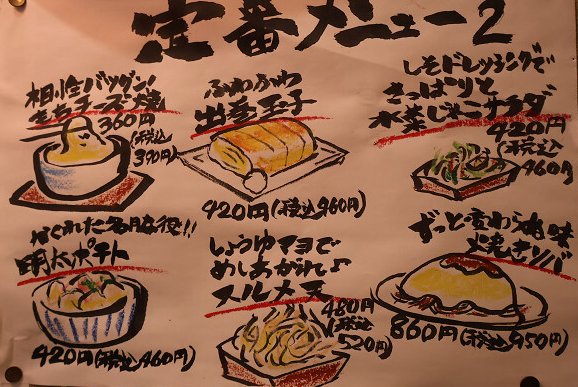 定番メニュー2
相性バツグン!
もちチーズ焼
360円
(税込
390円)
ふわふわ
出巻玉子
420円(税込460円)
しそドレッシングで
さっぱりと
水菜じゃこサラダ
420円
(税込
460円)
かくれた名脇役!!
明太ポテト
420円(税込460円)
しょうゆマヨで
めしあがれ♪
スルメ天
480円
(税込
520円)
ずっと変わらぬ味
焼きソバ
860円(税込950円)